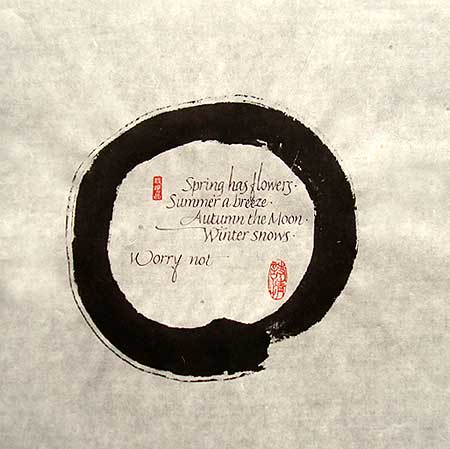 Spring has flowers.
Summer a breeze.
Autumn the Moon.
Winter snows.
Worry not